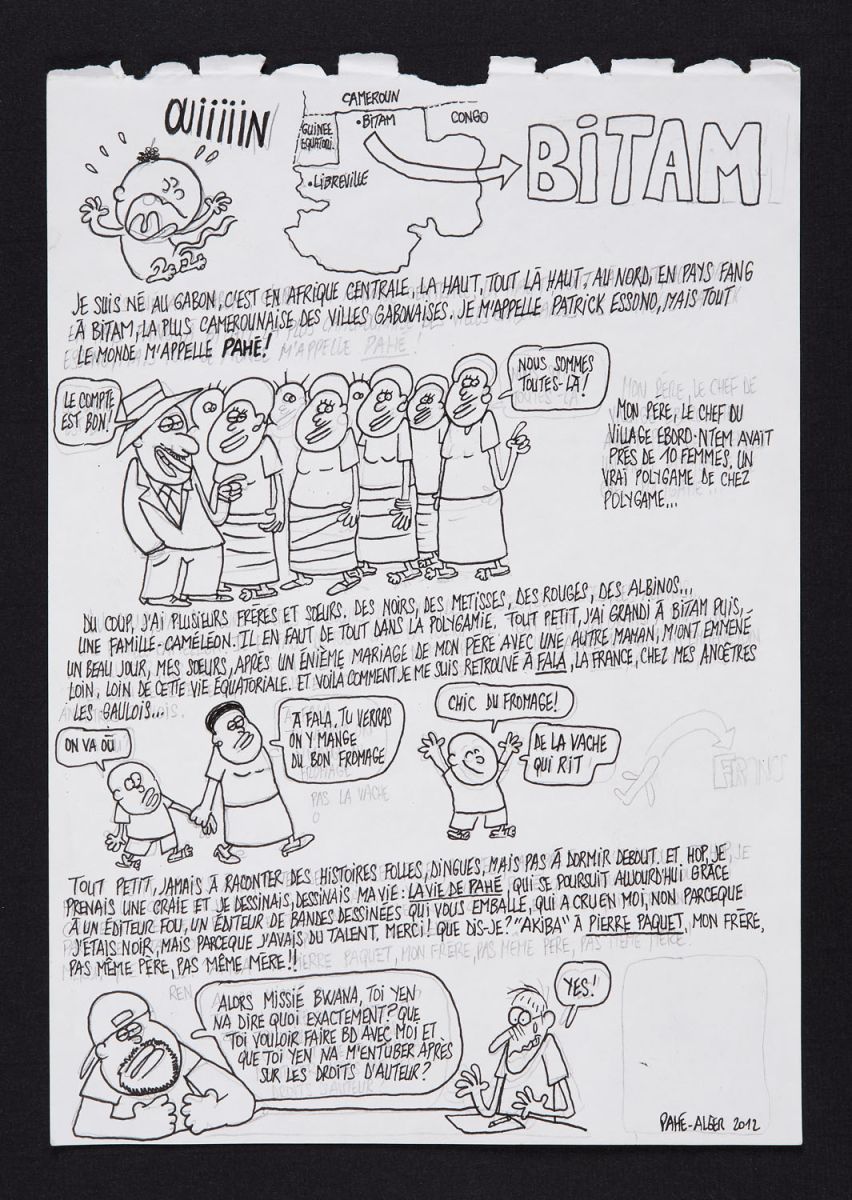 OUIIIIIN
CAMEROUN
GUINEE
EQUATORI.
•BITAM
CONGO
•LIBREVILLE
BITAM
JE SUIS NÉ AU GABON, C'EST EN AFRIQUE CENTRALE, LA HAUT, TOUT LÀ HAUT, AU NORD, EN PAYS FANG
À BITAM, LA PLUS CAMEROUNAISE DES VILLES GABONAISES. JE M'APPELLE PATRICK ESSONO, MAIS TOUT
LE MONDE M'APPELLE PAHÉ!
LE COMPTE
EST BON!
NOUS SOMMES
TOUTES-LÀ!
MON PÈRE, LE CHEF DU
VILLAGE EBORO-NTEM AVAIT
PRÈS DE 10 FEMMES, UN
VRAI POLYGAME DE CHEZ
POLYGAME...
DU COUP, J'AI PLUSIEURS FRÈRES ET SOEURS. DES NOIRS, DES METISSES, DES ROUGES, DES ALBINOS...
UNE FAMILLE-CAMÉLÉON. IL EN FAUT DE TOUT DANS LA POLYGAMIE. TOUT PETIT, J'AI GRANDI À BITAM PUIS,
UN BEAU JOUR, MES SOEURS, APRÈS UN ÉNIÈME MARIAGE DE MON PÈRE AVEC UNE AUTRE MAMAN, M'ONT EMMENÉ
LOIN, LOIN DE CETTE VIE EQUATORIALE. ET VOILA COMMENT JE ME SUIS RETROUVÉ À FALA, LA FRANCE, CHEZ MES ANCÊTRES
LES GAULOIS...
ON VA OÙ
À FALA, TU VERRAS
ON Y MANGE
DU BON FROMAGE
PAS LA VACHE
CHIC DU FROMAGE!
DE LA VACHE
QUI RIT
TOUT PETIT, JAMAIS À RACONTER DES HISTOIRES FOLLES, DINGUES, MAIS PAS À DORMIR DEBOUT. ET HOP, JE
PRENAIS UNE CRAIE ET JE DESSINAIS, DESSINAIS MA VIE: LA VIE DE PAHÉ, QUI SE POURSUIT AUJOURD'HUI GRÂCE
À UN ÉDITEUR FOU, UN ÉDITEUR DE BANDES DESSINÉES QUI VOUS EMBALLE, QUI A CRU EN MOI, NON PARCEQUE
J'ÉTAIS NOIR, MAIS PARCEQUE J'AVAIS DU TALENT. MERCI! QUE DIS-JE? "AKIBA" À PIERRE PAQUET, MON FRÈRE,
PAS MÊME PÈRE, PAS MÊME MÈRE!!
ALORS MISSIÉ BWANA, TOI YEN
NA DIRE QUOI EXACTEMENT? QUE
TOI VOULOIR FAIRE BD AVEC MOI ET
QUE TOI YEN NA M'ENTUBER APRÈS
SUR LES DROITS D'AUTEUR?
YES!
PAHE-ALGER 2012